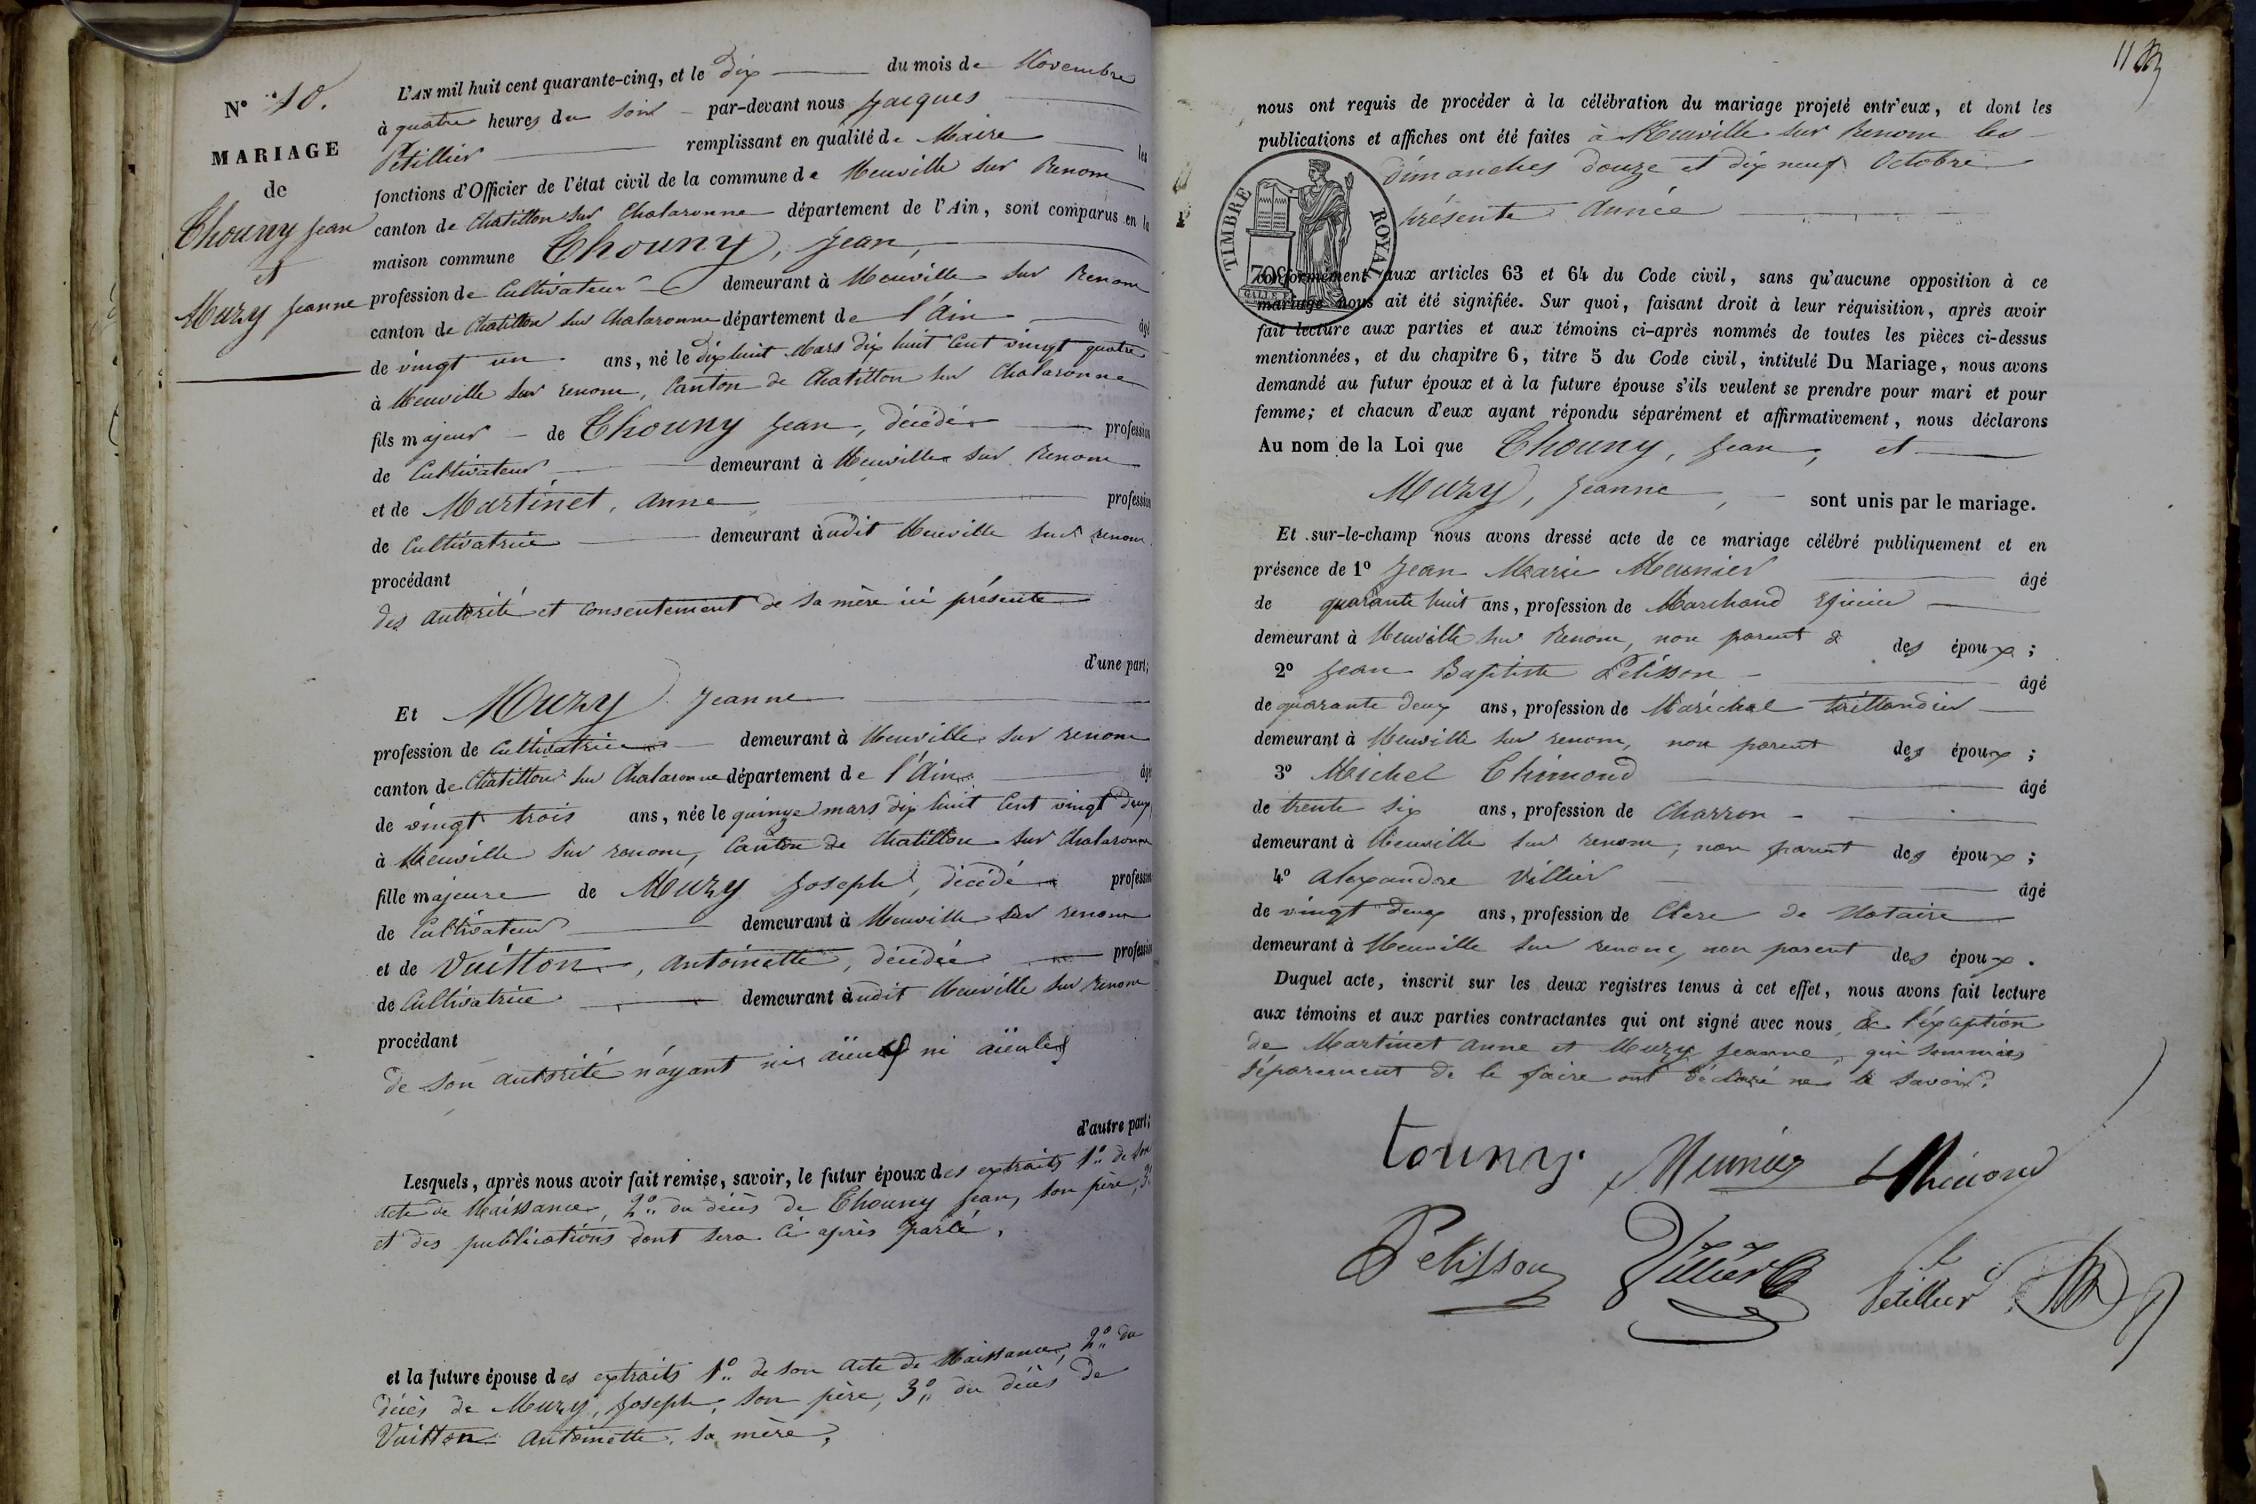 N° 10.
MARIAGE
de
Thouny Jean
et
Muzy Jeanne
L'AN mil huit cent quarante-cinq, et le dix du mois de Novembre
à quatre heures du soir par-devant nous Jacques
Petillier remplissant en qualité de Maire les
fonctions d'Officier de l'état civil de la commune de Neuville sur Renom
canton de Chatillon sur Chalaronne département de l'Ain, sont comparus en la
maison commune Thouny, Jean,
profession de Cultivateur demeurant à Neuville sur Renom
canton de Chatillon sur Chalaronne département de l'Ain âgé
de vingt un ans, né le dix huit Mars dix huit Cent vingt quatre
à Neuville sur renom, Canton de Chatillon sur Chalaronne
fils majeur de Thouny Jean, décédé profession
de Cultivateur demeurant à Neuville sur Renom
et de Martinet, anne profession
de Cultivatrice demeurant àudit Neuville sur renom
procédant
des autorité et consentement de sa mère ici présente
d'une part;
Et Muzy Jeanne
profession de Cultivatrice demeurant à Neuville sur renom
canton de Chatillon sur Chalaronne département de l'Ain âgé
de vingt trois ans, née le quinze mars dix huit Cent vingt deux
à Neuville sur renom, Canton de Chatillon sur Chalaronne
fille majeure de Muzy Joseph, décédé profession
de Cultivateur demeurant à Neuville sur renom
et de Vuitton, antoinette, décédée profession
de Cultivatrice demeurant àudit Neuville sur Renom
procédant
de son autorité n'ayant ni aïeux ni aïeules
d'autre part;
Lesquels, après nous avoir fait remise, savoir, le futur époux des extraits 1° de son
acte de Naissance, 2° du décès de Thouny Jean, son père, 3°
et des publications dont sera ci après parlé.
et la future épouse des extraits 1° de son acte de Naissance, 2° du
décès de Muzy, Joseph, son père, 3° du décès de
Vuitton Antoinette, sa mère,
113
nous ont requis de procéder à la célébration du mariage projeté entr'eux, et dont les
publications et affiches ont été faites à Neuville sur Renom les
dimanches douze et dix neuf Octobre
présente Année
TIMBRE ROYAL
70c
conformément aux articles 63 et 64 du Code civil, sans qu'aucune opposition à ce
mariage nous ait été signifiée. Sur quoi, faisant droit à leur réquisition, après avoir
fait lecture aux parties et aux témoins ci-après nommés de toutes les pièces ci-dessus
mentionnées, et du chapitre 6, titre 5 du Code civil, intitulé Du Mariage, nous avons
demandé au futur époux et à la future épouse s'ils veulent se prendre pour mari et pour
femme; et chacun d'eux ayant répondu séparément et affirmativement, nous déclarons
Au nom de la Loi que Thouny, Jean, et
Muzy, Jeanne, sont unis par le mariage.
Et sur-le-champ nous avons dressé acte de ce mariage célébré publiquement et en
présence de 1° Jean Marie Meunier âgé
de quarante huit ans, profession de Marchand Epicier
demeurant à Neuville sur Renom, non parent des époux;
2° Jean Baptiste Pelisson âgé
de quarante deux ans, profession de Maréchal taillandier
demeurant à Neuville sur renom, non parent des époux;
3° Michel Thimond âgé
de trente six ans, profession de Charron
demeurant à Neuville sur renom, non parent des époux;
4° Alexandre Villier âgé
de vingt deux ans, profession de Clerc de Notaire
demeurant à Neuville sur renom, non parent des époux.
Duquel acte, inscrit sur les deux registres tenus à cet effet, nous avons fait lecture
aux témoins et aux parties contractantes qui ont signé avec nous à l'éxception
de Martinet anne et Muzy Jeanne, qui sommées
séparement de le faire ont déclaré ne le savoir.
touny. Meunier thimond
Pelisson Villier Petillier